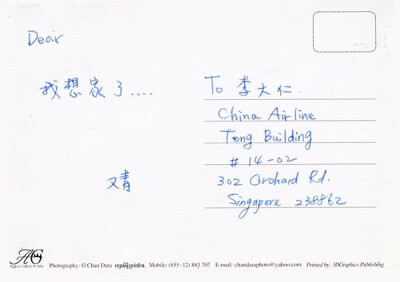 Dear
我想家了....
又青
To 李大仁.
China Airline
Tong Building
# 14-02
302 Orchard Rd.
Singapore 238862
Photography: © Chan Data
Mobile: (855-12) 883 707
E-mail: chandataphoto@yahoo.com
Printed by: 3DGraphics Publishing